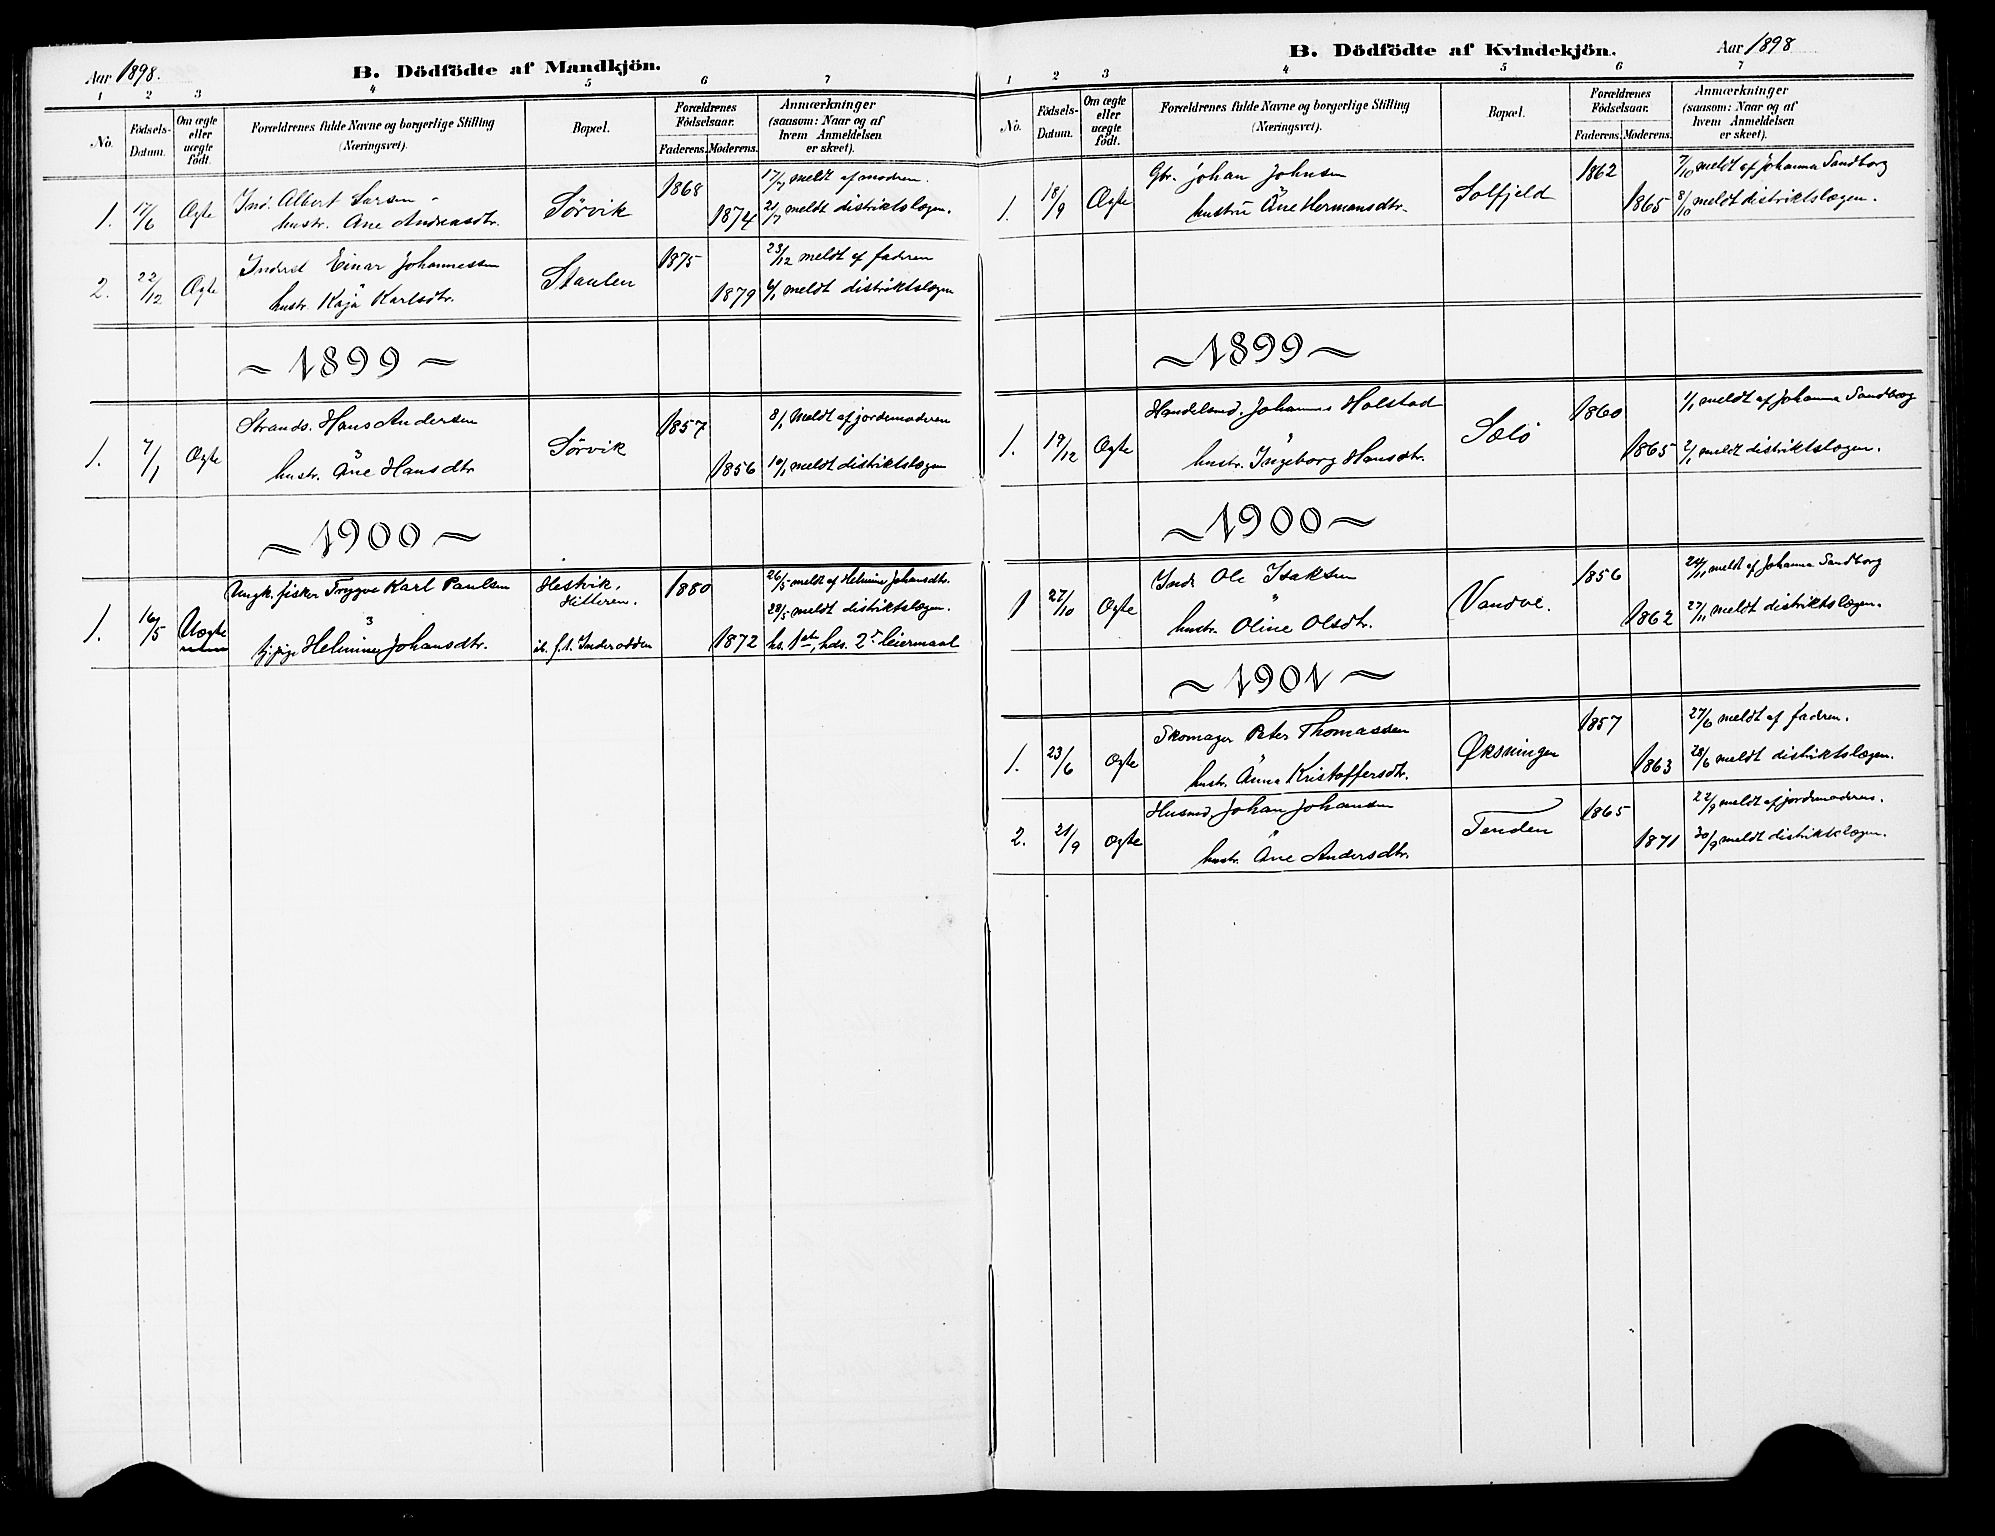 Aar 1898.
B. Dödfödte af Mandkjön.
1 2 3 4 5 6 7
No. Födsels-Datum. Om ægte eller uægte födt. Forældrenes fulde Navne og borgerlige Stilling (Næringsvei). Bopæl. Forældrenes Födselsaar. Faderens. Moderens. Anmærkninger (saasom: Naar og af hvem Anmeldelsen er skeet).
1. 17/6 Ægte Ind. Albert Larsen Sørvik 1868 17/7 meldt af modren.
hustr. Ane Andreasdtr. 1874 21/7 meldt distriktslægen.
2. 22/12 Ægte Inderst Einar Johannessen Staulen 1875 23/12 meldt af fadren
hustr. Kaja Karlsdtr. 1879 4/1 meldt distriktslægen
~ 1899 ~
1. 7/1 Ægte Strands. Hans Andersen Sørvik 1857 8/1 Meldt af jordemoderen
hustr. Ane Hansdtr 1856 10/1 meldt distriktslægen
~ 1900 ~
1. 16/5 Uægte Ungk. fisker Trygve Karl Paulsen Hestvik, Hitteren. 1880 26/5 meldt af Helmine Johansdtr.
28/5 meldt distriktslægen.
pige Helmine Johansdtr. Inderodden 1872 hs. 1ste, hds. 2d leiermaal
B. Dödfödte af Kvindekjön.
Aar 1898
1 2 3 4 5 6 7
No. Födsels-Datum. Om ægte eller uægte födt. Forældrenes fulde Navne og borgerlige Stilling (Næringsvei). Bopæl. Forældrenes Födselsaar. Faderens. Moderens. Anmærkninger (saasom: Naar og af hvem Anmeldelsen er skeet).
1. 18/9 Ægte Gbr. Johan Johnsen Solfjeld 1862 7/10 meldt af Johanna Sandborg
hustru Ane Hermansdtr. 1865 8/10 meldt distriktslægen.
~ 1899 ~
1. 19/12 Ægte Handelsmd. Johannes Holstad Sælø 1860 1/1 meldt af Johanna Sandborg
hustr. Ingeborg Hansdtr. 1865 2/1 meldt distriktslægen.
~ 1900 ~
1 27/10 Ægte Inds Ole Isaksen Vandve. 1856 24/11 meldt af Johanna Sandborg
hustr. Oline Olsdtr. 1862 27/11 meldt distriktslægen.
~ 1901 ~
1. 23/6 Ægte Skomager Peter Thomassen Øksningen 1857 27/6 meldt af fadren.
hustr. Anna Kristoffersdtr. 1863 28/6 meldt distriktslægen.
2. 21/9 Ægte Husmd. Johan Johansen Tenden 1865 22/9 meldt af jordemoderen.
hustr. Ane Andersdtr. 1871 30/9 meldt distriktslægen.